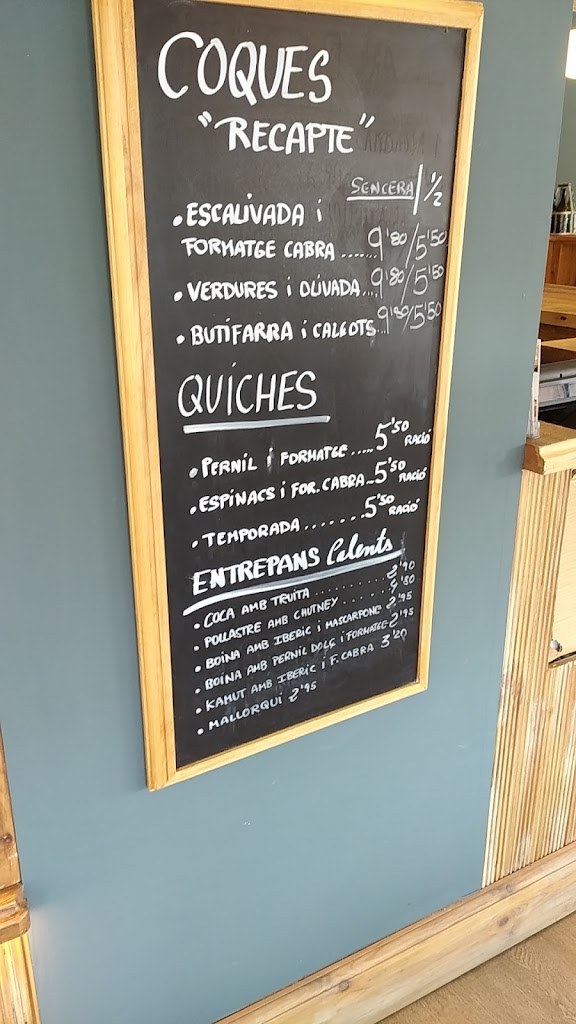 COQUES
"RECAPTE"
SENCERA / 1/2
• ESCALIVADA i
FORMATGE CABRA ....... 9'80/5'50
• VERDURES i OLIVADA... 9'80/5'50
• BUTIFARRA i CALÇOTS... 9'80/5'50
QUICHES
• PERNIL i FORMATGE ..... 5'50 RACIÓ
• ESPINACS i FOR. CABRA.. 5'50 RACIÓ
• TEMPORADA ....... 5'50 RACIÓ
ENTREPANS Calents
• COCA AMB TRUITA .......... 2'90
• POLLASTRE AMB CHUTNEY ...... 4'50
• BOINA AMB IBERIC i MASCARPONE 2'95
• BOINA AMB PERNIL DOLÇ i FORMATGE - 2'95
• KAMUT AMB IBERIC i F. CABRA 3'20
• MALLORQUI 2'95